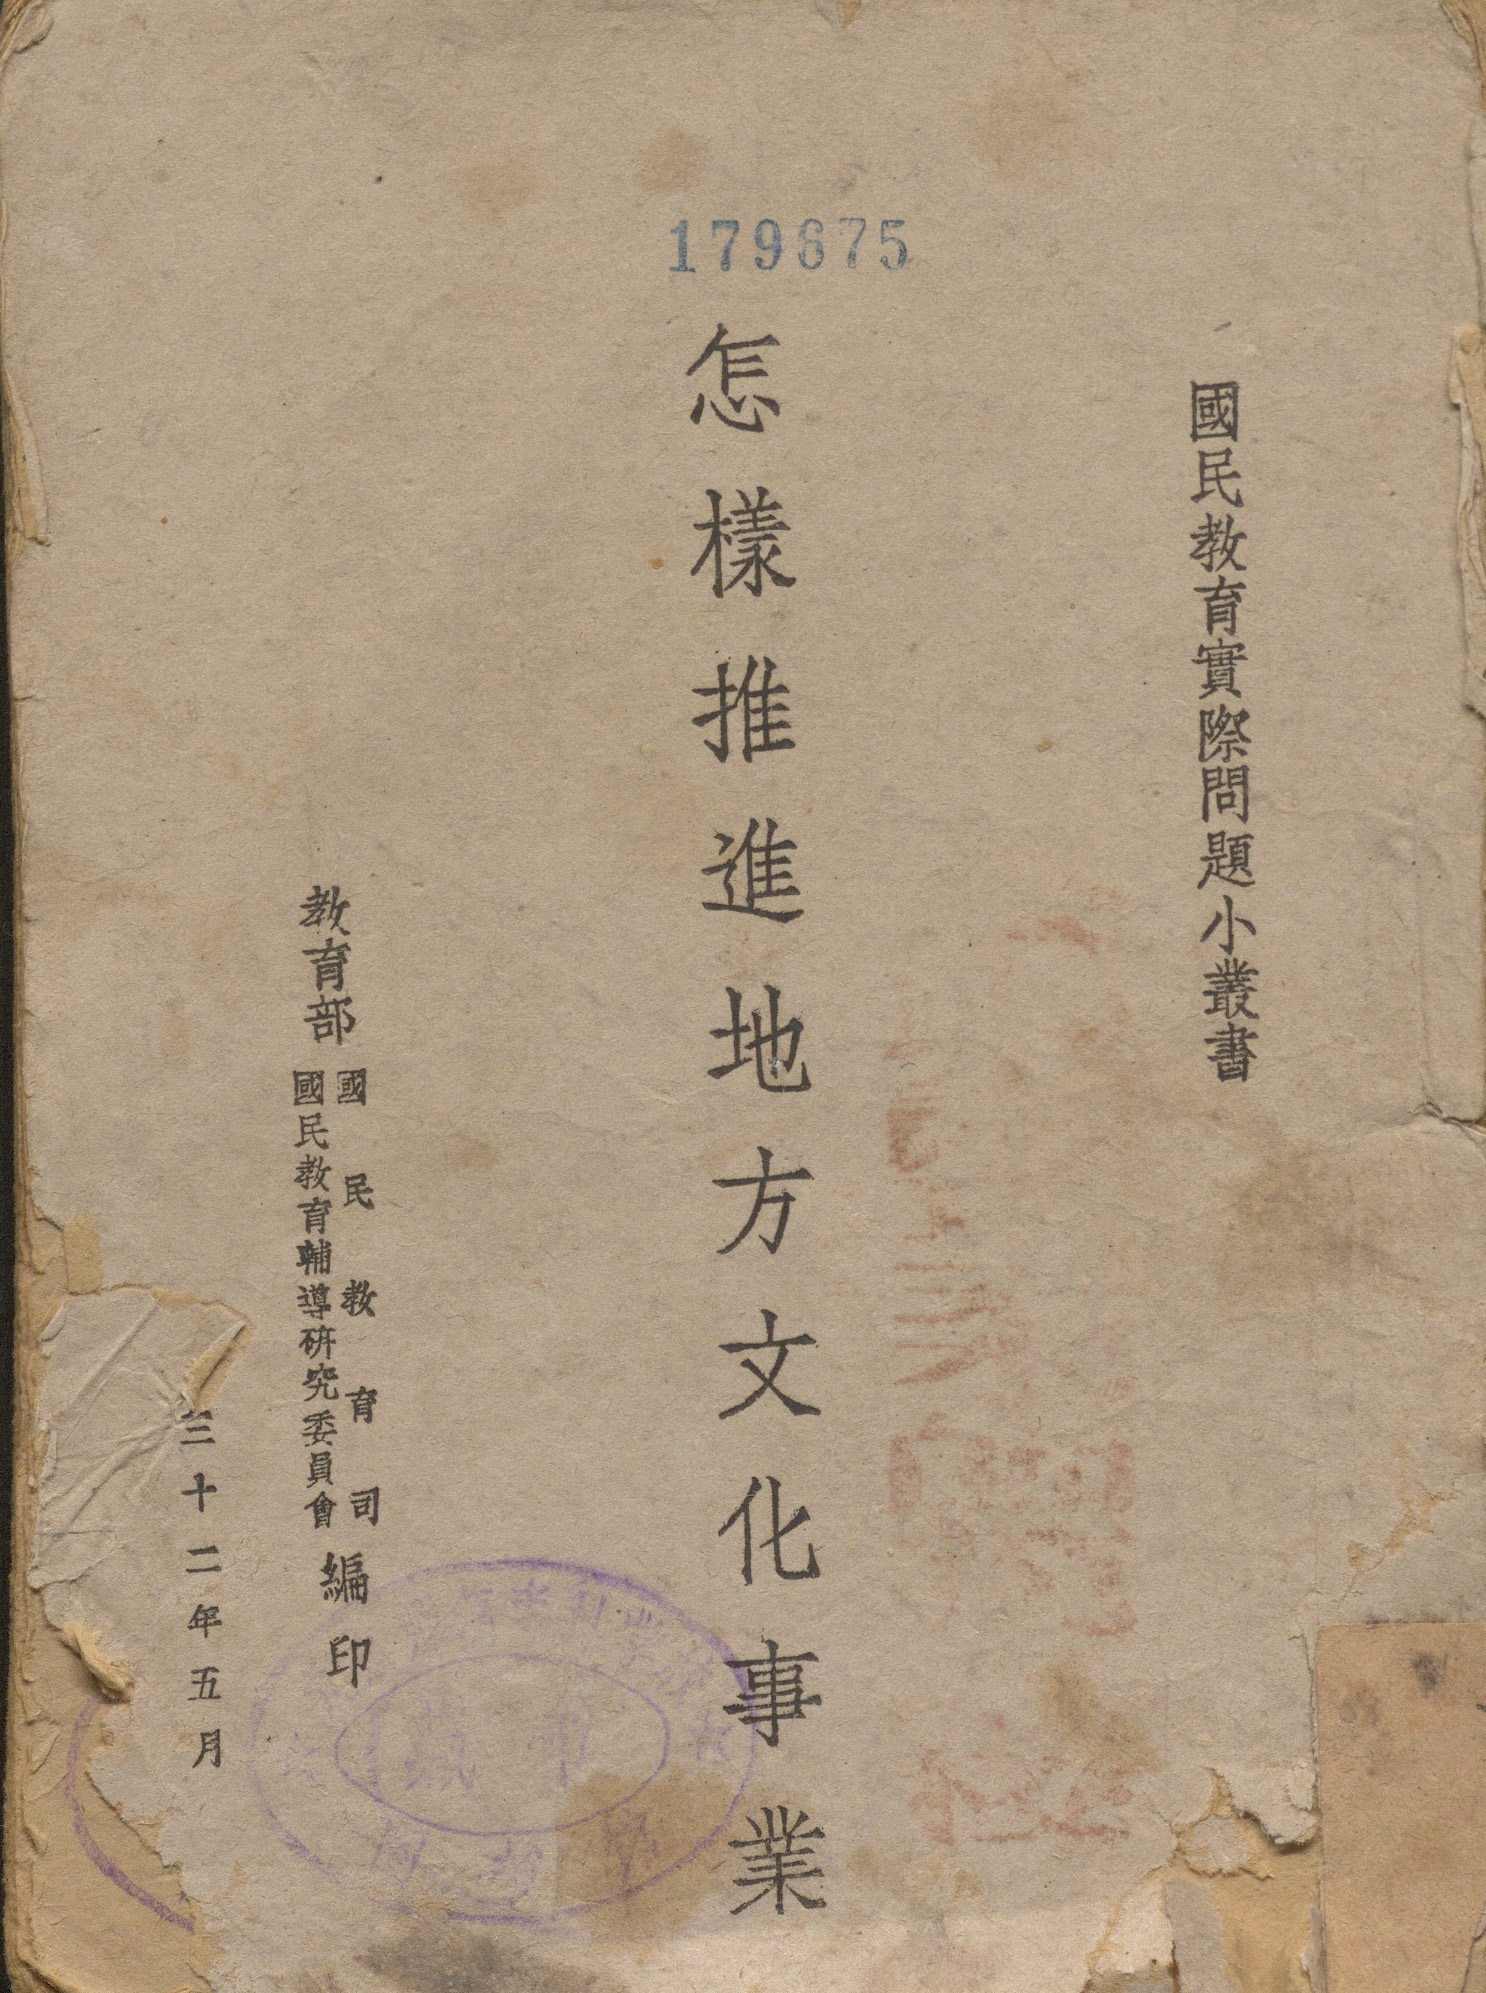 179675
國民教育實際問題小叢書
怎樣推進地方文化事業
教育部
國民教育司
國民教育輔導研究委員會
編印
三十二年五月